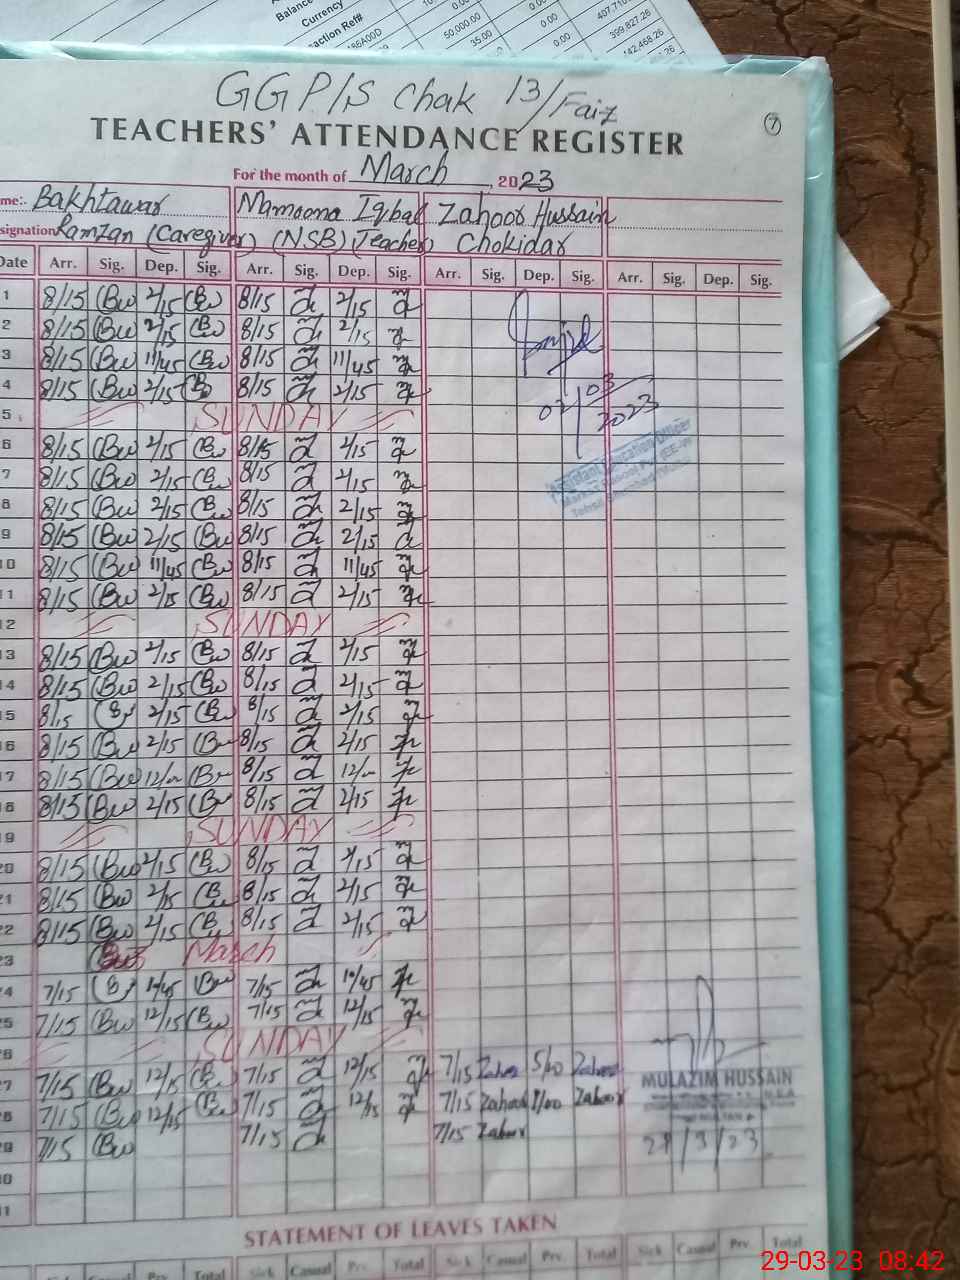 Balance
Currency
50,000.00
35.00
0.00
0.00
0.00
0.00
399,827.26
GGP/S Chak 13/Faiz
7
TEACHERS' ATTENDANCE REGISTER
For the month of March, 2023
me:- Bakhtawar Mamoona Iqbal Zahoor Hussain
signation Ramzan (Caregiver) (NSB) (Teacher) Chokidar
Date Arr. Sig. Dep. Sig. Arr. Sig. Dep. Sig. Arr. Sig. Dep. Sig. Arr. Sig. Dep. Sig.
1 8/15 Bw 2/15 Bw 8/15 2/15
2 8/15 Bw 2/15 Bw 8/15 2/15
3 8/15 Bw 11/45 Bw 8/15 11/45
4 8/15 Bw 2/15 B 8/15 2/15
02/03/2023
5 SUNDAY
6 8/15 Bw 2/15 Bw 8/15 2/15
Assistant Education Officer
7 8/15 Bw 2/15 Bw 8/15 2/15
8 8/15 Bw 2/15 Bw 8/15 2/15
9 8/15 Bw 2/15 Bw 8/15 2/15
10 8/15 Bw 11/45 Bw 8/15 11/45
11 8/15 Bw 2/15 Bw 8/15 2/15
12 SUNDAY
13 8/15 Bw 2/15 Bw 8/15 2/15
14 8/15 Bw 2/15 Bw 8/15 2/15
15 8/15 2/15 Bw 8/15 2/15
16 8/15 Bw 2/15 Bw 8/15 2/15
17 8/15 Bw 12/ Bw 8/15 12/
18 8/15 Bw 2/15 Bw 8/15 2/15
19 SUNDAY
20 8/15 Bw 2/15 Bw 8/15 2/15
21 8/15 Bw 2/15 Bw 8/15 2/15
22 8/15 Bw 2/15 Bw 8/15 2/15
23 March
24 7/15 Bw 7/15
25 7/15 Bw 12/15 Bw 7/15 12/15
26 SUNDAY
27 7/15 Bw 12/15 Bw 7/15 12/15 7/15 Zahoor 5/00 Zahoor
MULAZIM HUSSAIN
28 7/15 Bw 12/15 Bw 7/15 12/15 7/15 Zahoor Zahoor
29 7/15 Bw 7/15 7/15 Zahoor
/3/23
30
31
STATEMENT OF LEAVES TAKEN
Sick Casual Prv. Total Sick Casual Prv. Total Sick Casual Prv. Total
29-03-23 08:42